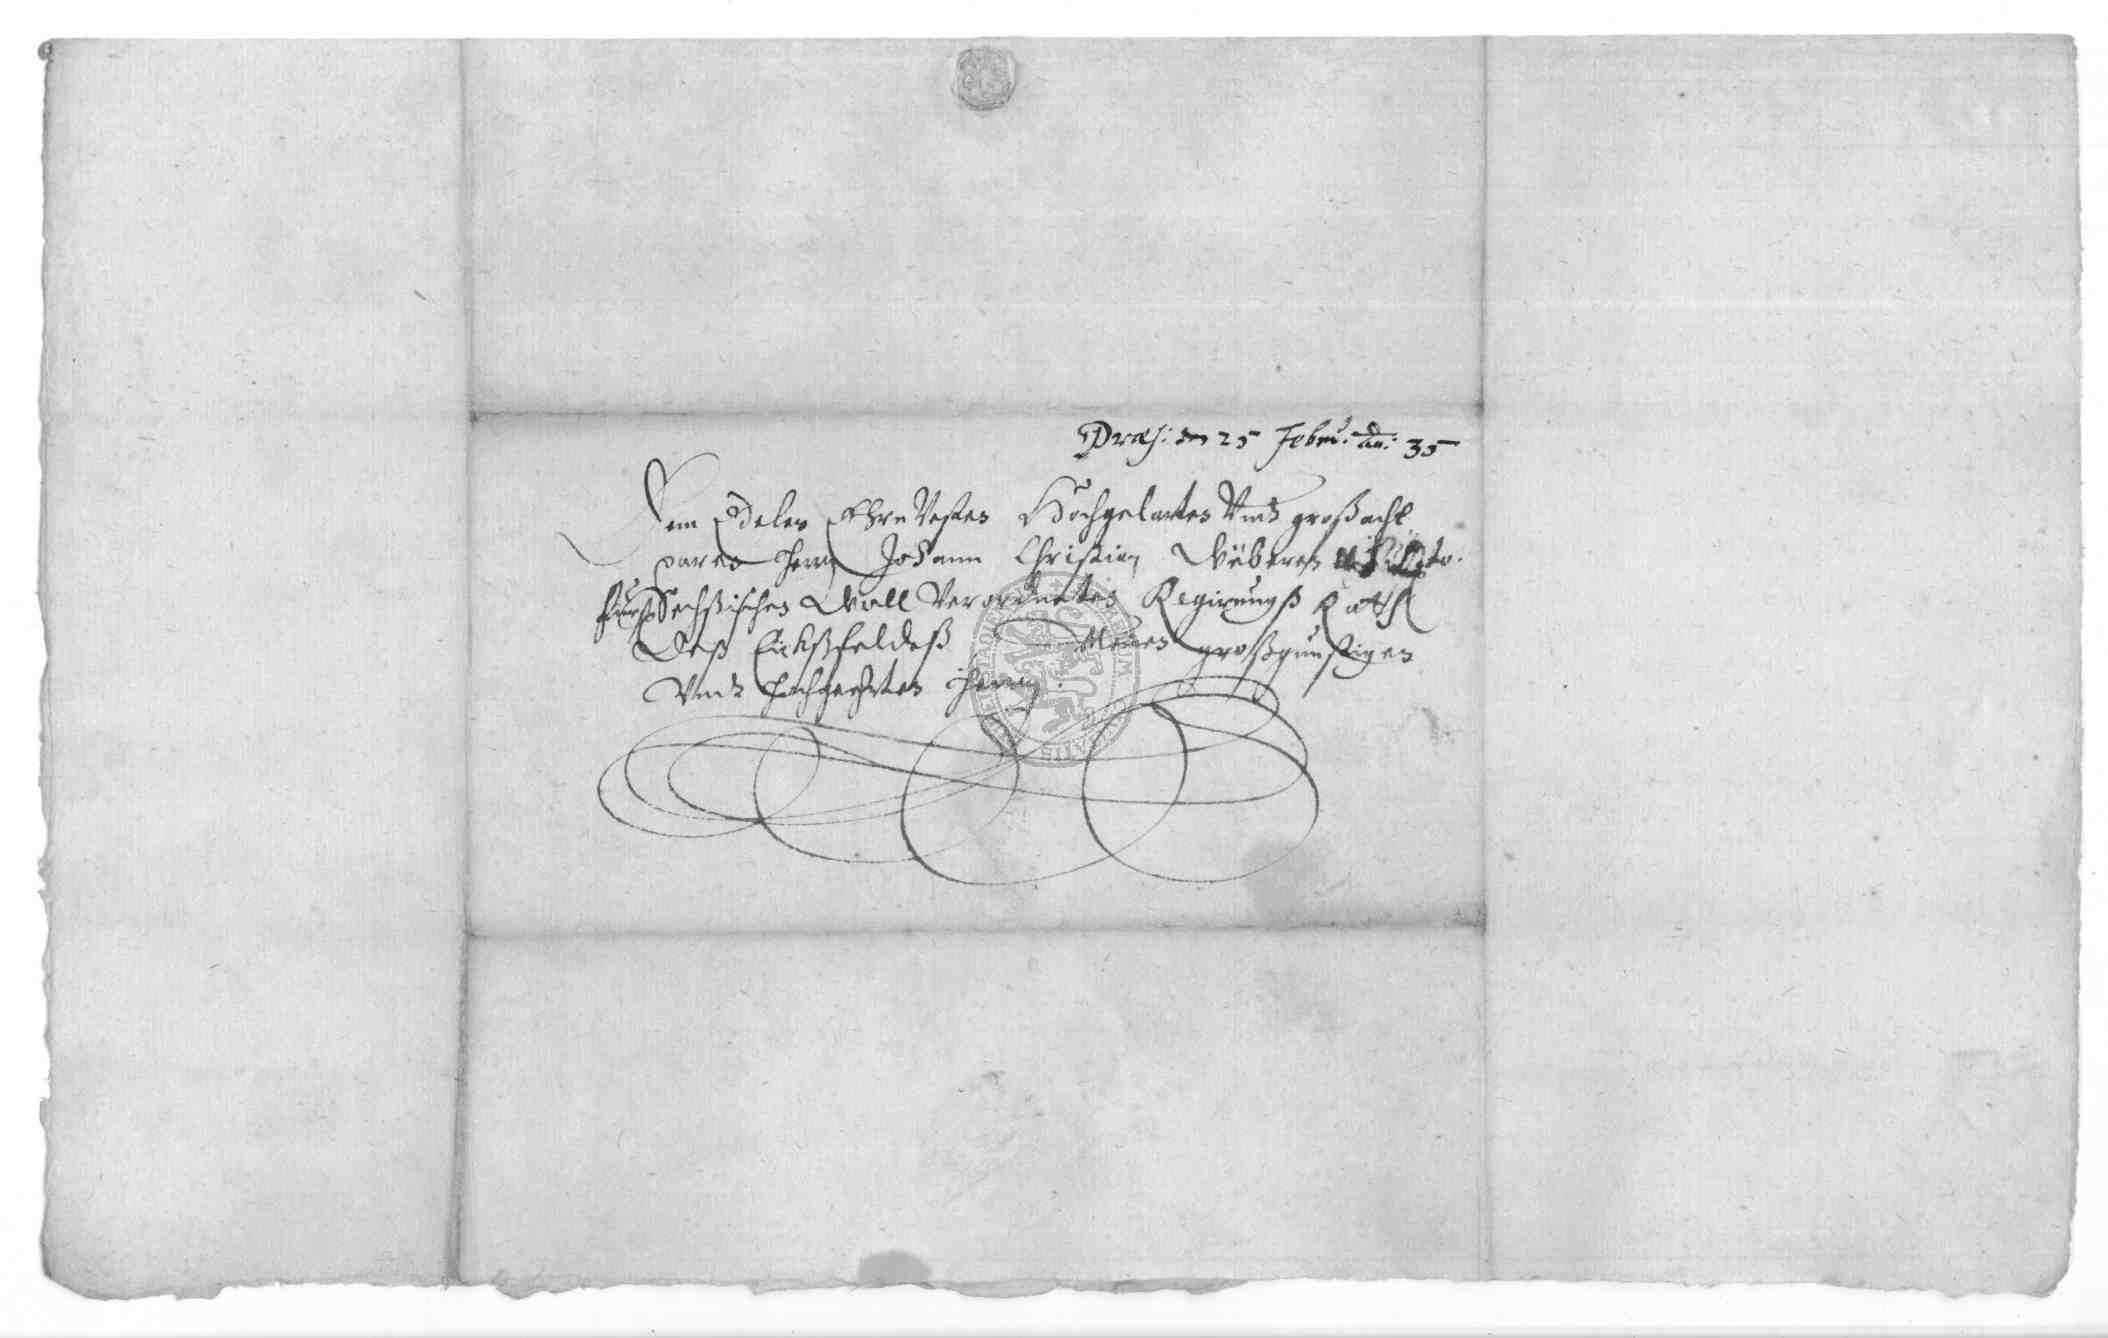 Præs: den 25 Febru: an: 35
Dem Edelen Ehrnvesten Hochgelarten Vnd großacht
paren Herrn Johann Christian Wëberen
fürstl Sechßischen Woll Verordneten Regirungß Rath
Deß Eickßfeldeß Meinen großgünstigen
Vnd hochgeehrten Herrn.